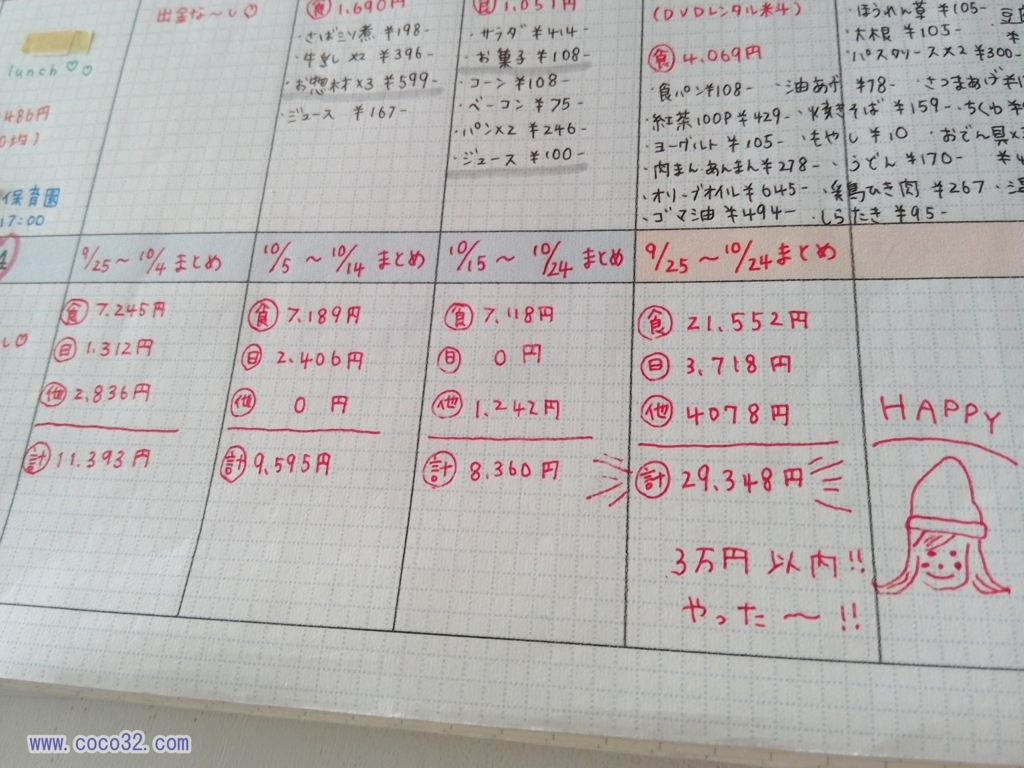 lunch♡♡
486円
保育園
17:00
出金な〜し♡
食 1.690円
・さばミソ煮 ¥198-
・牛乳 ×2 ¥396-
・お惣材×3 ¥599-
・ジュース ¥167-
1.051円
・サラダ ¥414-
・お菓子 ¥108-
・コーン ¥108-
・ベーコン ¥75-
・パン×2 ¥246-
・ジュース ¥100-
(DVDレンタル ※4)
食 4.069円
・食パン¥108- ・油あげ ¥78-
・紅茶100P ¥429- ・焼きそば ¥159-
・ヨーグルト ¥105- ・もやし ¥10
・肉まんあんまん¥278- ・うどん ¥170-
・オリーブオイル¥645- ・鶏ひき肉 ¥267
・ゴマ油 ¥494- ・しらたき ¥95-
・ほうれん草 ¥105-
・大根 ¥105-
・パスタソース×2 ¥300-
・さつまあげ
・ちくわ
・おでん具
9/25〜10/4 まとめ
食 7.245円
日 1.312円
他 2.836円
計 11.393円
10/5 〜 10/14 まとめ
食 7.189円
日 2.406円
他 0 円
計 9.595円
10/15 〜 10/24 まとめ
食 7.118円
日 0 円
他 1.242円
計 8.360円
9/25〜10/24まとめ
食 21.552円
日 3.718円
他 4078円
計 29.348円
3万円 以内!!
やった〜!!
HAPPY
www.coco32.com